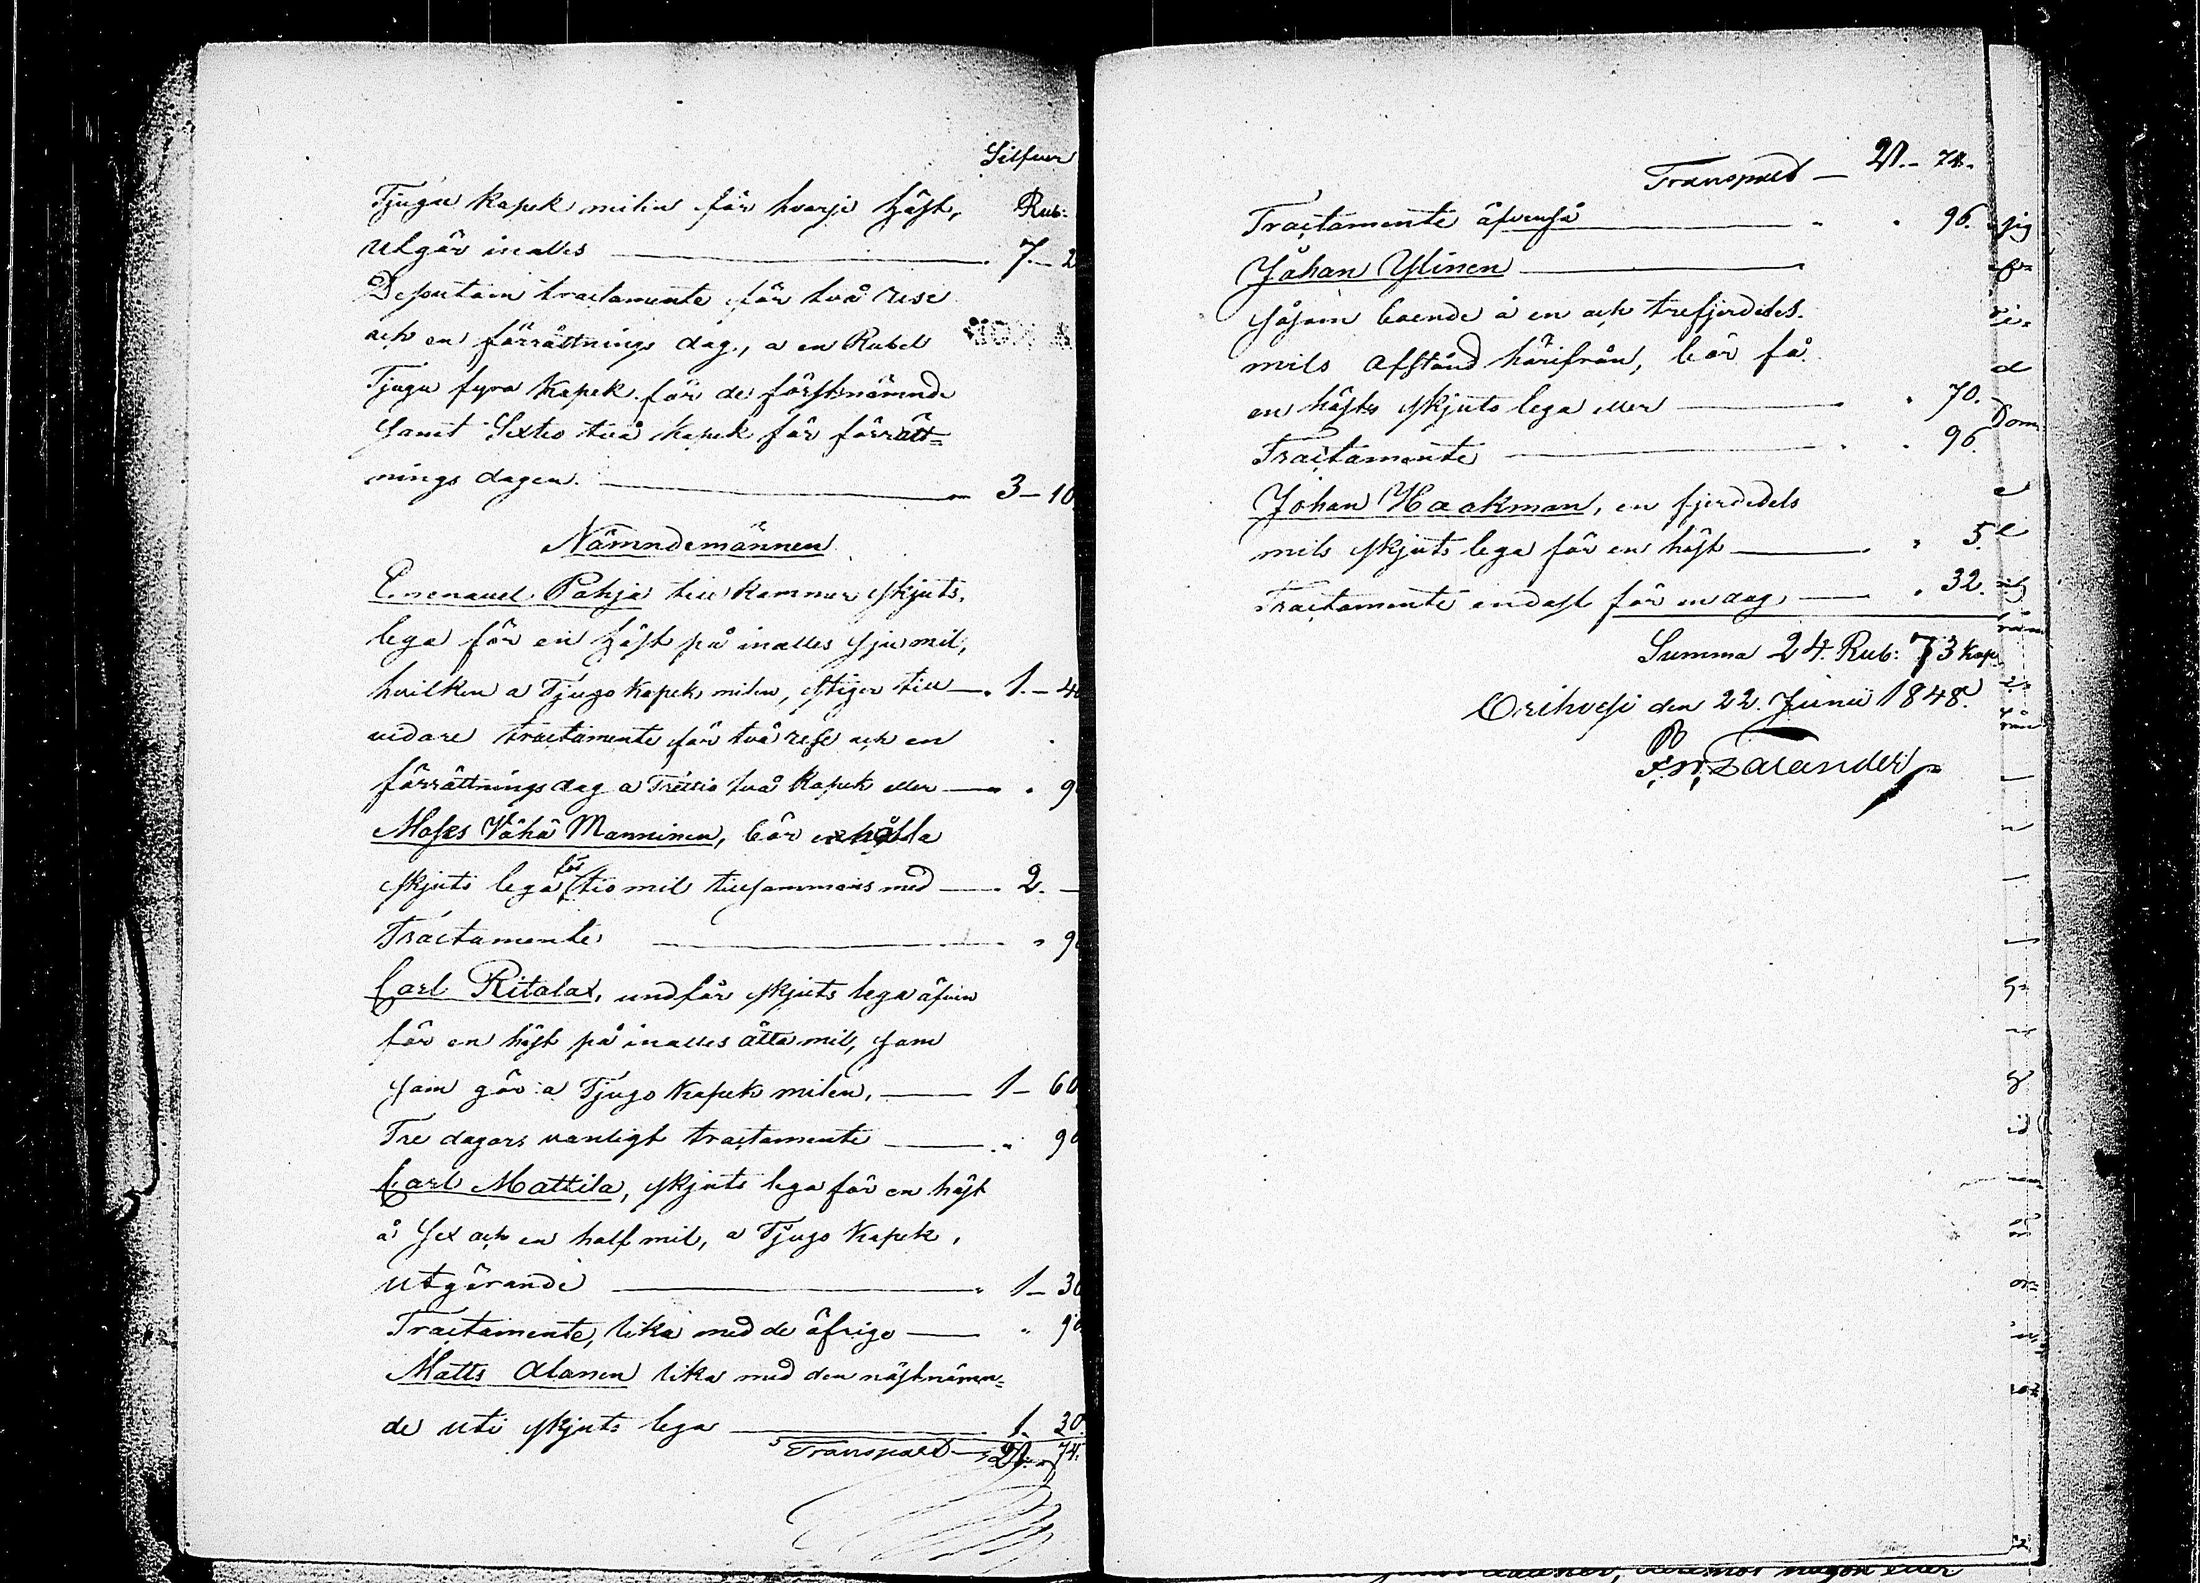 Silfver
Tjugu kopek milen för hvarje häst, Rub:
Utgår inalles 7.-2
Desutom tractamente för två rese
och en förrättnings dag, a en Rubel
Tjugu fyra kopek för de förstnämnde
samt Sextio två kopek för förrätt=
nings dagen. 3-10
Nämndemännen
Emenauel Pahja till kommer skjuts,
lega för en häst på inalles sju mil,
hvilken a Tjugo kopek milen, stiger till 1.-4
vidare tractamente för två rese och en
förrättnings dag a Trettio två kopek eller " 9
Moses Vähä Manninen, bör erhålla
skjuts lega för tio mil tillsammans med 2.-
Tractamente " 9
Carl Ritalax, undfår skjuts lega äfven
för en häst på inalles åtta mil, som
som gör a Tjugo kopek milen, 1-60
Tre dagars vanligt tractamente " 9
Carl Mattila, skjuts lega för en häst
å Sex och en half mil, a Tjugo kopek,
utgörande 1-30
Tractamente, lika med de öfrige " 9
Matts Alanen lika med den nästnämn=
de uti skjuts lega 1. 30.
Transport 21. 74.
Transport - 21.- 74.
Tractamente äfvenså " " 96.
Johan Ylinen
såsom boende å en och trefjerdedels
mils afstånd härifrån, bör få
en hästs skjuts lega eller " 70.
Tractamente " " 96.
Johan Haakman, en fjerdedels
mils skjuts lega för en häst " 5.
Tractamente endast för en dag " 32.
Summa 24. Rub: 73 kop
Orihvesi den 22. Junii 1848.